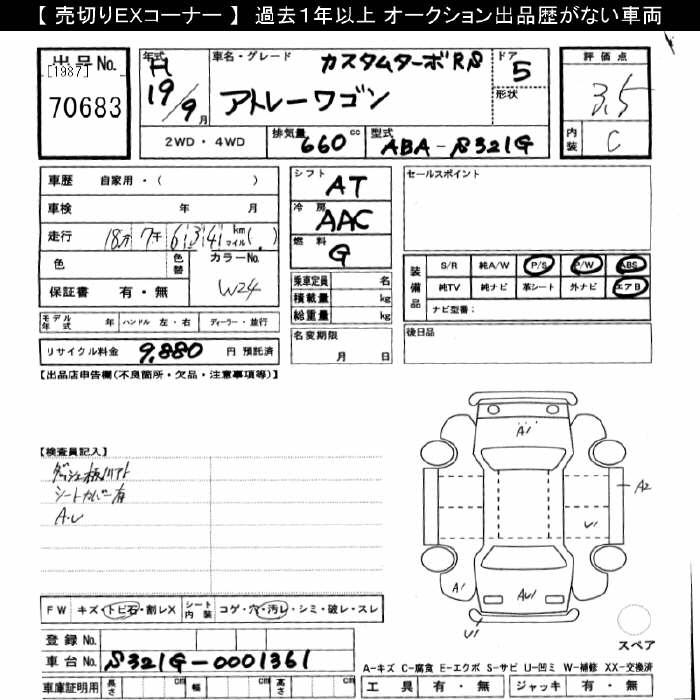 【 売切りEXコーナー 】 過去1年以上 オークション出品歴がない車両
出品No.
[1987]
70683
年式
H
19/9月
車名・グレード
カスタムターボRS
アトレーワゴン
ドア
5
形状
評価点
3.5
内装
C
2WD・4WD
排気量
660cc
型式
ABA-S321G
車歴 自家用・( )
車検 年 月
走行 18万7千634 km マイル( )
色
色替
カラーNo.
W24
保証書 有・無
シフト
AT
冷房
AAC
燃料
G
乗車定員 名
積載量 kg
総重量 kg
セールスポイント
装備品
S/R 純A/W P/S P/W ABS
純TV 純ナビ 革シート 外ナビ エアB
ナビ型番:
モデル年式 年 ハンドル 左・右 ディーラー・並行
リサイクル料金 9,880 円 預託済
名変期限
月 日
後日品
【出品店申告欄(不良箇所・欠品・注意事項等)】
【検査員記入】
シートカバー有
A.U
A1
A2
U1
A1
AU1
U1
FW キズ・トビ石・割レX シート内装 コゲ・穴・汚レ・シミ・破レ・スレ
登録No.
車台No. S321G-0001361
車庫証明用 長さ cm 幅 cm 高さ cm
スペア
A-キズ C-腐食 E-エクボ S-サビ U-凹ミ W-補修 XX-交換済
工具 有・無 ジャッキ 有・無